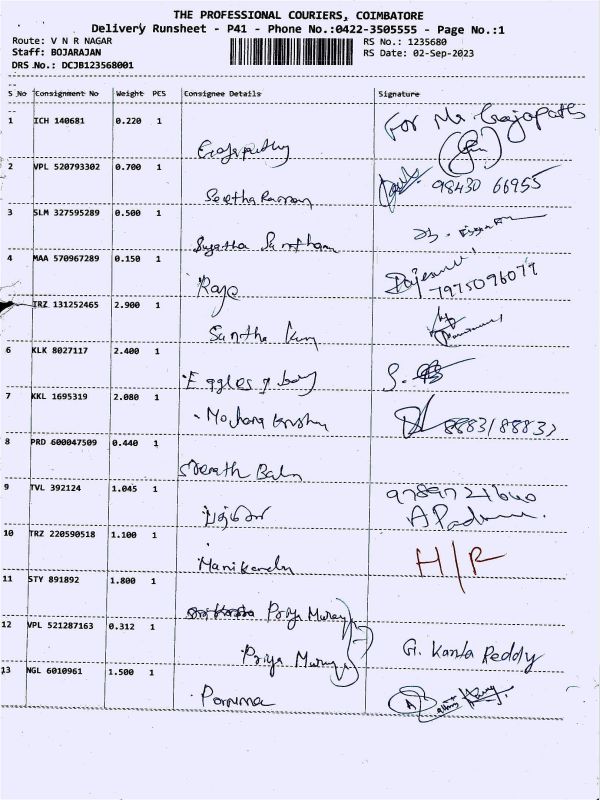 THE PROFESSIONAL COURIERS, COIMBATORE
Delivery Runsheet - P41 - Phone No.:0422-3505555 - Page No.:1
Route: V N R NAGAR RS No.: 1235680
Staff: BOJARAJAN RS Date: 02-Sep-2023
DRS No.: DCJB123568001
S No Consignment No Weight PCS Consignee Details Signature
1 ICH 140681 0.220 1
For Mr Gajapathy
Gajapathy
2 VPL 520793302 0.700 1
98430 66955
Seetha Raman
3 SLM 327595289 0.500 1
Sujatha
4 MAA 570967289 0.150 1
7975096079
Raja
TRZ 131252465 2.900 1
Santha
6 KLK 8027117 2.400 1
Eggles
7 KKL 1695319 2.080 1
Mohana
8 PRD 600047509 0.440 1
Babu
9 TVL 392124 1.045 1
9789721640
A Padma
10 TRZ 220590518 1.100 1
H/R
Manikandan
11 STY 891892 1.800 1
Priya
12 VPL 521287163 0.312 1
Priya
G. Kanta Reddy
13 NGL 6010961 1.500 1
Pornima